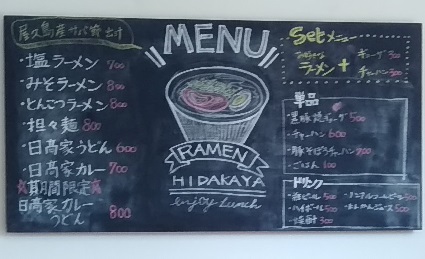 屋久島産サバ寄出汁
・塩ラーメン 700
・みそラーメン 800
・とんこつラーメン 800
・担々麺 800
・日高家うどん 600
・日高家カレー 700
期間限定
日高家カレーうどん 800
MENU
RAMEN
HIDAKAYA
enjoy Lunch
Setメニュー
ラーメン + ギョーザ 300
チャーハン
単品
・黒豚焼ギョーザ 500
・チャーハン 600
・豚そぼろチャーハン 700
・ごはん 100
ドリンク
・生ビール 500
・ノンアルコールビール
・ハイボール 500
・焼酎